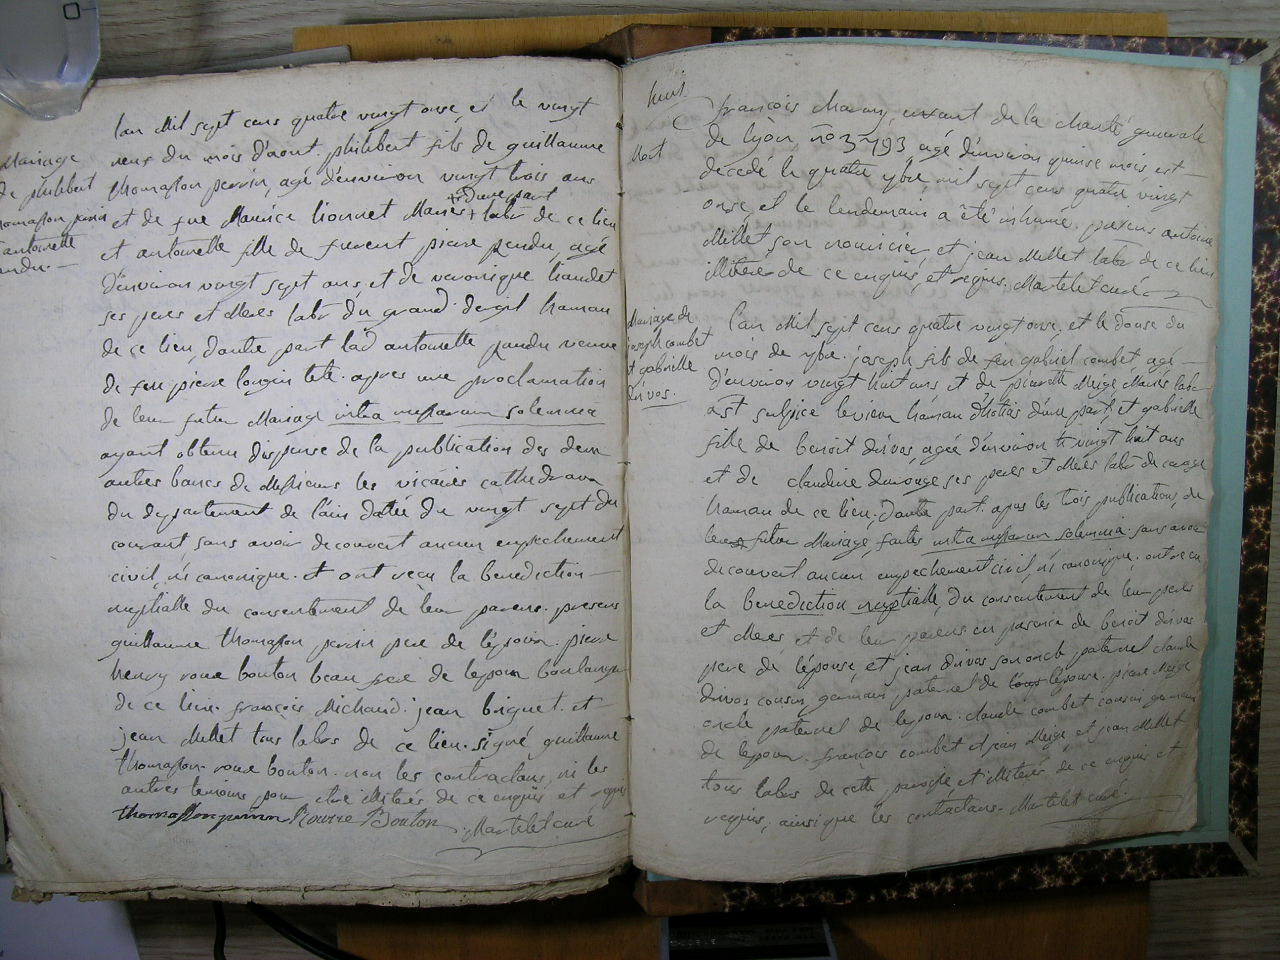 Mariage
de philibert
thomasson perrin
antoinette
l'an Mil sept cens quatre vingt onse, et le vingt
neuf du mois d'aout. philibert fils de guillaume
thomasson perrin, agé d'environ vingt trois ans
et de feue Maurice lionnet Mariés + labr de ce lieu
+ d'une part
et antoinette fille de fuvent piere pandu, agé
d'environ vingt sept ans, et de veronique liaudet
ses peres et Meres labr du grand hamau
de ce lieu, d'autre part lad antoinette pandu veuve
de feu piere longin tete. apres une proclamation
de leur futur Mariage intra missarum solemnia
ayant obtenu dispense de la publication des deux
autres bancs de Messieurs les vicaires cathedraux
du departement de l'ain datée du vingt sept du
courant, sans avoir decouvert aucun empechement
civil, ni canonique. et ont recu la benediction
nuptialle du consentement de leur parens. presens
guillaume thomasson perrin pere de l'épour. piere
henry roux bouton beau frere de lepour boulanger
de ce lieu. françois Michaud. jean briguet. et
jean Millet tous labrs de ce lieu. signé guillaume
thomasson. roux bouton. non les contractans, ni les
autres temoins pour etre illiterés de ce enquis et requis
thomasson perrin Rouxe Bouton. Martelet curé
huit
Mort
françois Marny, exsant de la charité generale
de lyon no 3793 agé d'environ quinse mois est
decedé le quatre 7bre, mil sept cens quatre vingt
onse, et le lendemain a été inhumé. presens antoine
Millet son nouricier, et jean Millet labr de ce lieu
illiterés de ce enquis, et requis. Martelet curé
Mariage de
joseph combet
et gabrielle
drivos.
l'an Mil sept cens quatre vingt onse. et le douse du
mois de 7bre. joseph fils de feu gabriel combet, agé
d'environ vingt huit ans et de pierrette Meige Mariés labr
a st sulpice levieux hamau d'hotias d'une part, et gabrielle
fille de benoit drivos, agée d'environ vingt huit ans
et de claudine ses peres et Meres labr de
hamau de ce lieu, d'autre part. apres les trois publications de
leur futur Mariage faites intra missarum solemnia. sans avoir
decouvert aucun empechement civil, ni canonique, ont recu
la benediction nuptialle du consentement de leur peres
et Meres, et de leur parens en presence de benoit drivos
pere de l'épouse, et jean drivos son oncle paternel claude
drivos cousin germain paternel de lepouse. piere Meige
oncle paternel de lepour. claude combet cousin germain
de lepour. françois combet et jean Meige et jean Millet
tous labrs de cette paroisse et illiterés de ce enquis et
requis, ainsi que les contractans. Martelet curé.